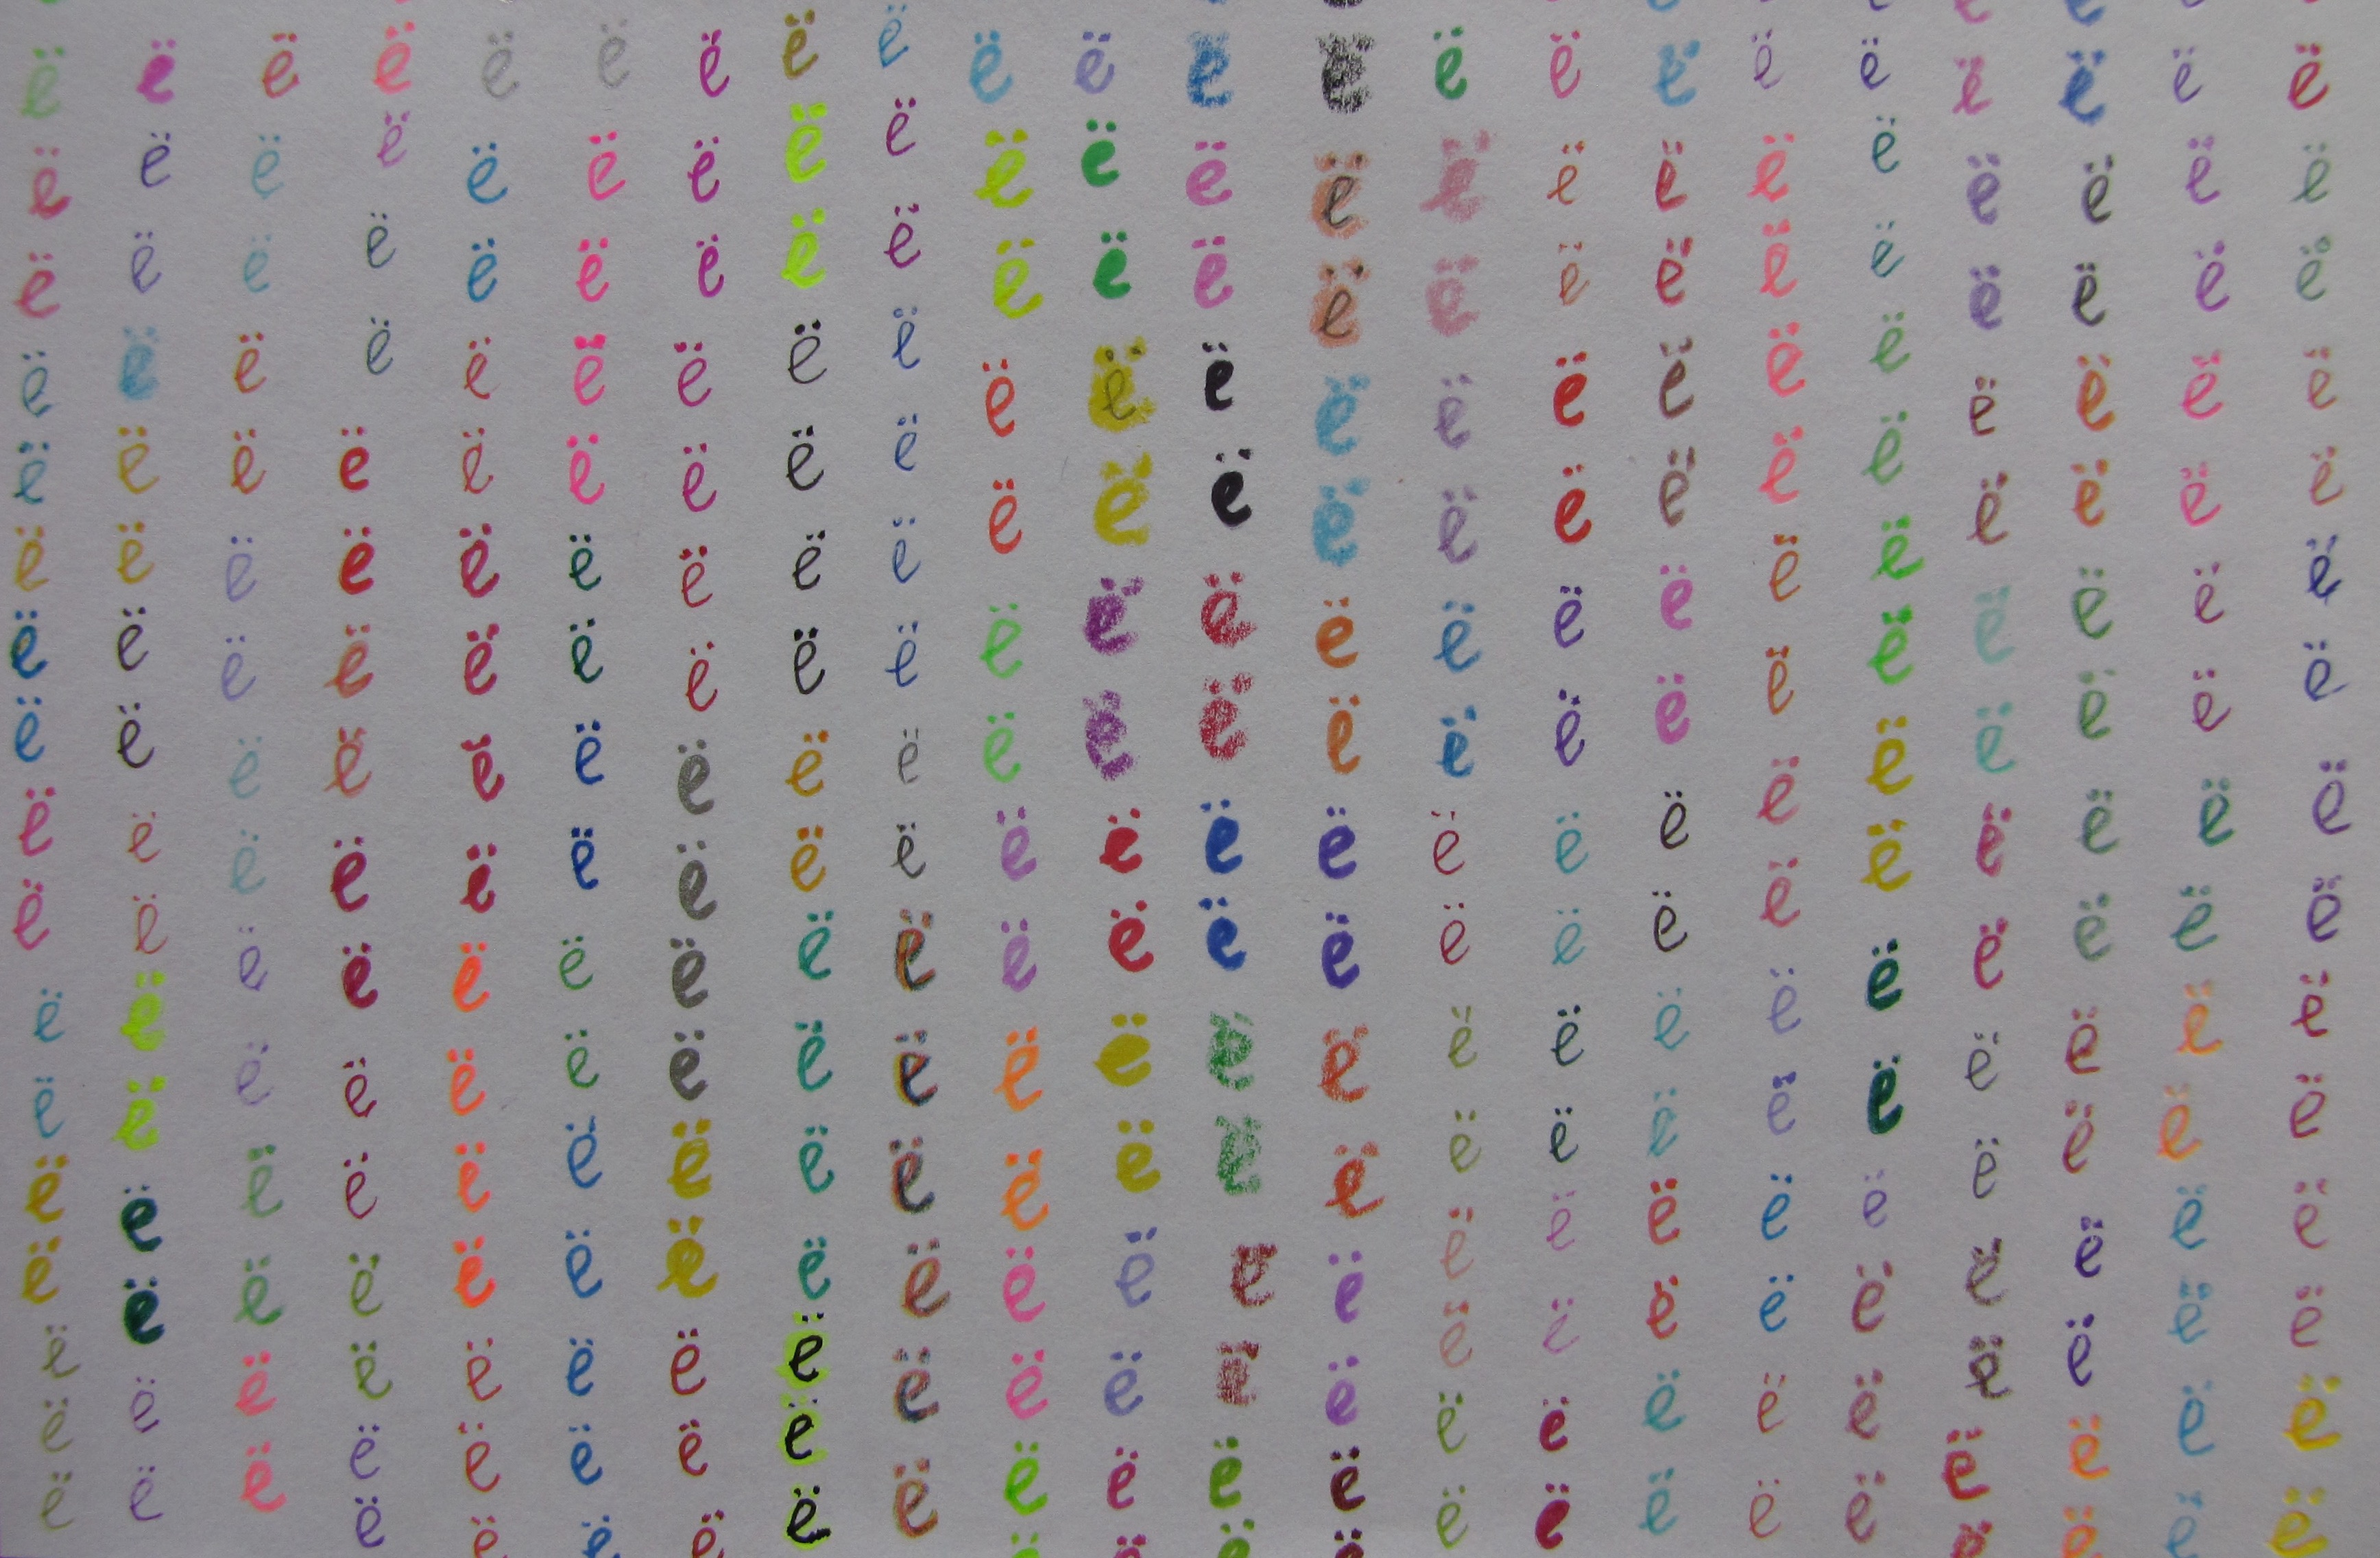 ë ë ë ë ë ë ë ë ë ë ë ë ë ë ë ë ë ë ë ë ë ë
ë ë ë ë ë ë ë ë ë ë ë ë ë ë ë ë ë ë ë ë ë ë
ë ë ë ë ë ë ë ë ë ë ë ë ë ë ë ë ë ë ë ë ë ë
ë ë ë ë ë ë ë ë ë ë ë ë ë ë ë ë ë ë ë ë ë ë
ë ë ë ë ë ë ë ë ë ë ë ë ë ë ë ë ë ë ë ë ë ë
ë ë ë ë ë ë ë ë ë ë ë ë ë ë ë ë ë ë ë ë ë ë
ë ë ë ë ë ë ë ë ë ë ë ë ë ë ë ë ë ë ë ë ë ë
ë ë ë ë ë ë ë ë ë ë ë ë ë ë ë ë ë ë ë ë ë ë
ë ë ë ë ë ë ë ë ë ë ë ë ë ë ë ë ë ë ë ë ë ë
ë ë ë ë ë ë ë ë ë ë ë ë ë ë ë ë ë ë ë ë ë ë
ë ë ë ë ë ë ë ë ë ë ë ë ë ë ë ë ë ë ë ë ë ë
ë ë ë ë ë ë ë ë ë ë ë ë ë ë ë ë ë ë ë ë ë ë
ë ë ë ë ë ë ë ë ë ë ë ë ë ë ë ë ë ë ë ë ë ë
ë ë ë ë ë ë ë ë ë ë ë ë ë ë ë ë ë ë ë ë ë ë
ë ë ë ë ë ë ë ë ë ë ë ë ë ë ë ë ë ë ë ë ë ë